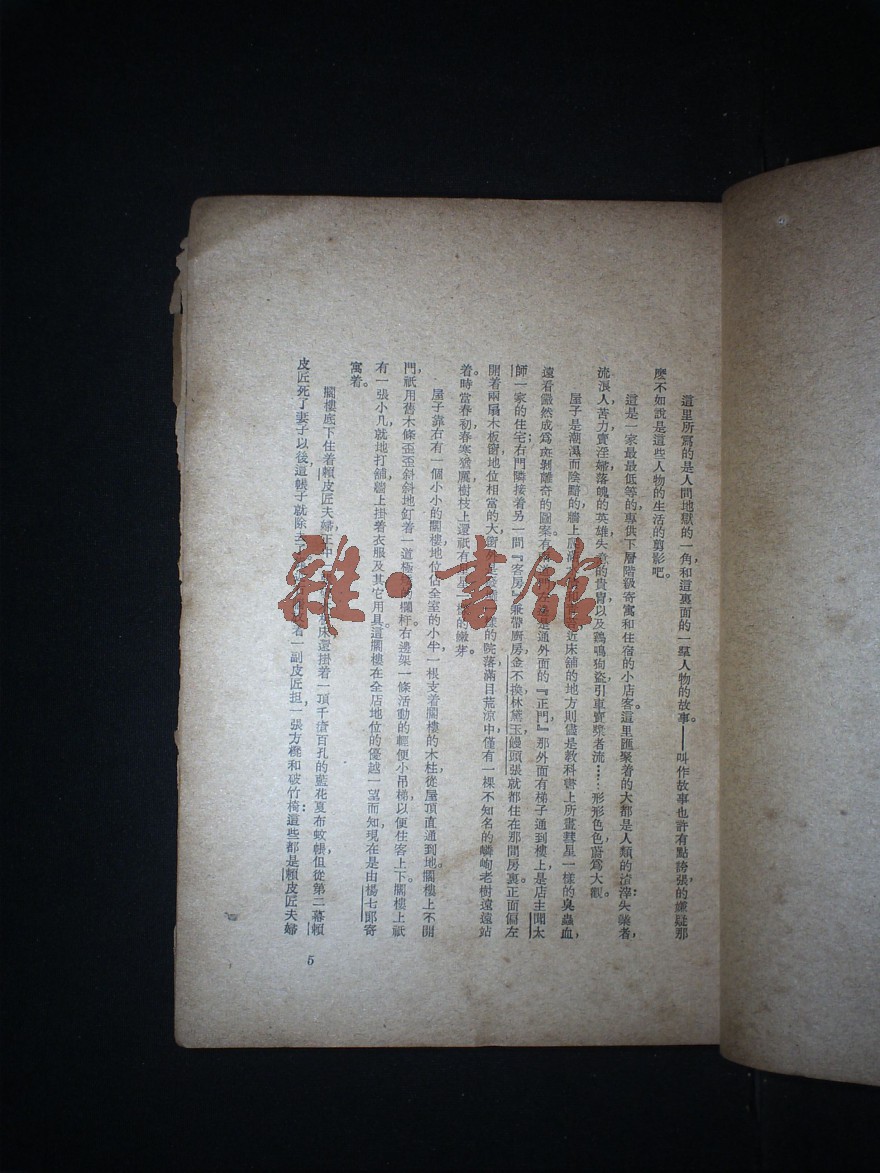 這里所寫的是人間地獄的一角,和這裏面的一羣人物的故事。——叫作故事也許有點誇張的嫌疑,那
麽不如說是這些人物的生活的剪影吧。
這是一家最最低等的,專供下層階級寄寓和住宿的小店客。這里匯聚着的大都是人類的渣滓:失業者,
流浪人,苦力,賣淫婦,落魄的英雄,失意的貴胄,以及鷄鳴狗盜,引車賣漿者流……形形色色,蔚爲大觀。
屋子是潮濕而陰黯的,牆上 近床舖的地方,則儘是教科書上所畫彗星一樣的臭蟲血,
遠看儼然成爲斑剝離奇的圖案。有 是通外面的『正門』,那外面有梯子通到樓上,是店主聞太
師一家的住宅;右門隣接着另一間『客房』兼帶厨房,金不換,林黛玉,饅頭張就都住在那間房裏。正面偏左
開着兩扇木板窗,地位相當的大,窗 樣的院落,滿目荒涼中,僅有一棵不知名的嶙峋老樹遠遠站
着。時當春初,春寒猶厲,樹枝上還祇有 的嫩芽。
屋子靠右有一個小小的閣樓,地位佔全室的小半,一根支着閣樓的木柱,從屋頂直通到地。閣樓上不開
門,祇用舊木條歪歪斜斜地釘着一道極 的欄杆,右邊架一條活動的輕便小吊梯,以便住客上下。閣樓上祇
有一張小几,就地打舖,牆上掛着衣服及其它用具。這閣樓在全店地位的優越,一望而知,現在是由楊七郎寄
寓着。
閣樓底下住着賴皮匠夫婦,正中 床,還掛着一頂千瘡百孔的藍花夏布蚊帳,但從第二幕賴
皮匠死了妻子以後,這帳子就除去了。 着一副皮匠担,一張方櫈和破竹椅:這些都是賴皮匠夫婦
5
雜·書館